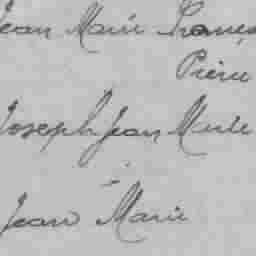 Jean Marie Franç
Pierre
Joseph Jean Marie
Jean Marie